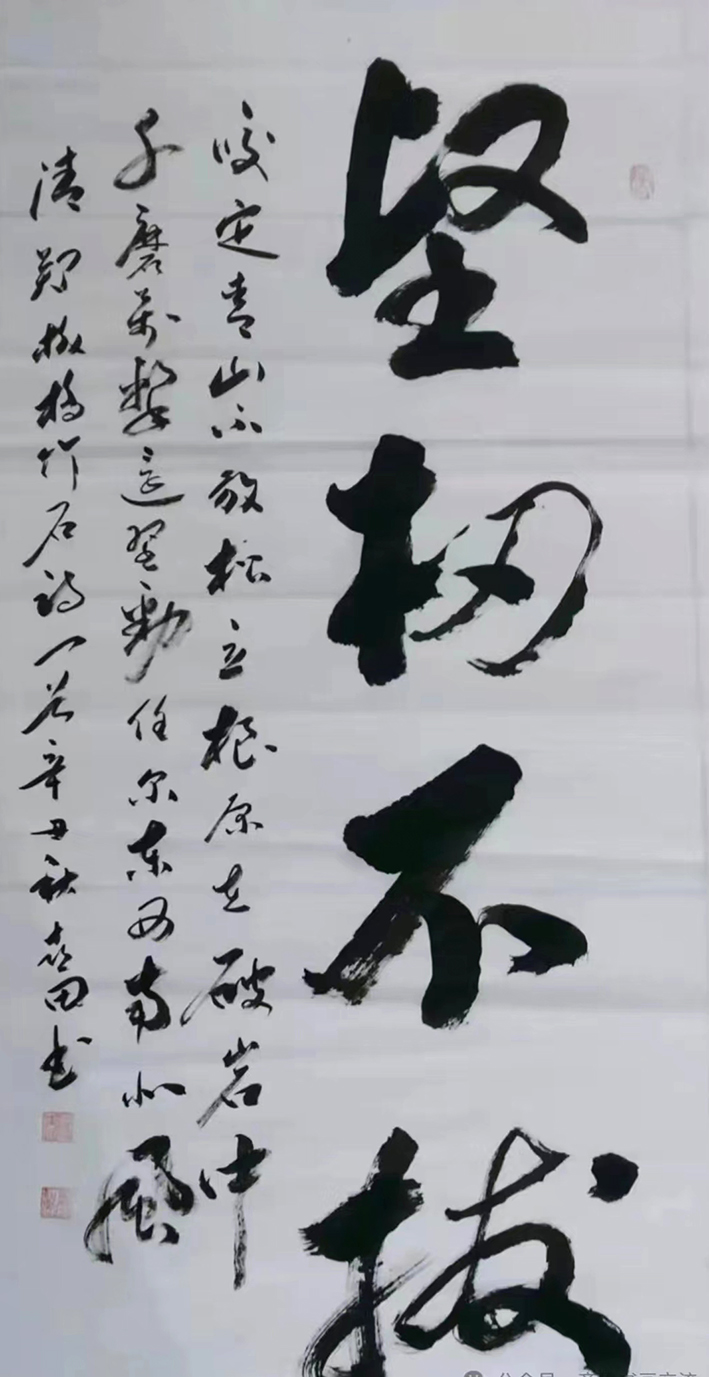 坚韧不拔
咬定青山不放松立根原在破岩中
千磨萬擊还坚劲任尔东西南北風
清郑板桥竹石诗一首辛丑秋喜田书